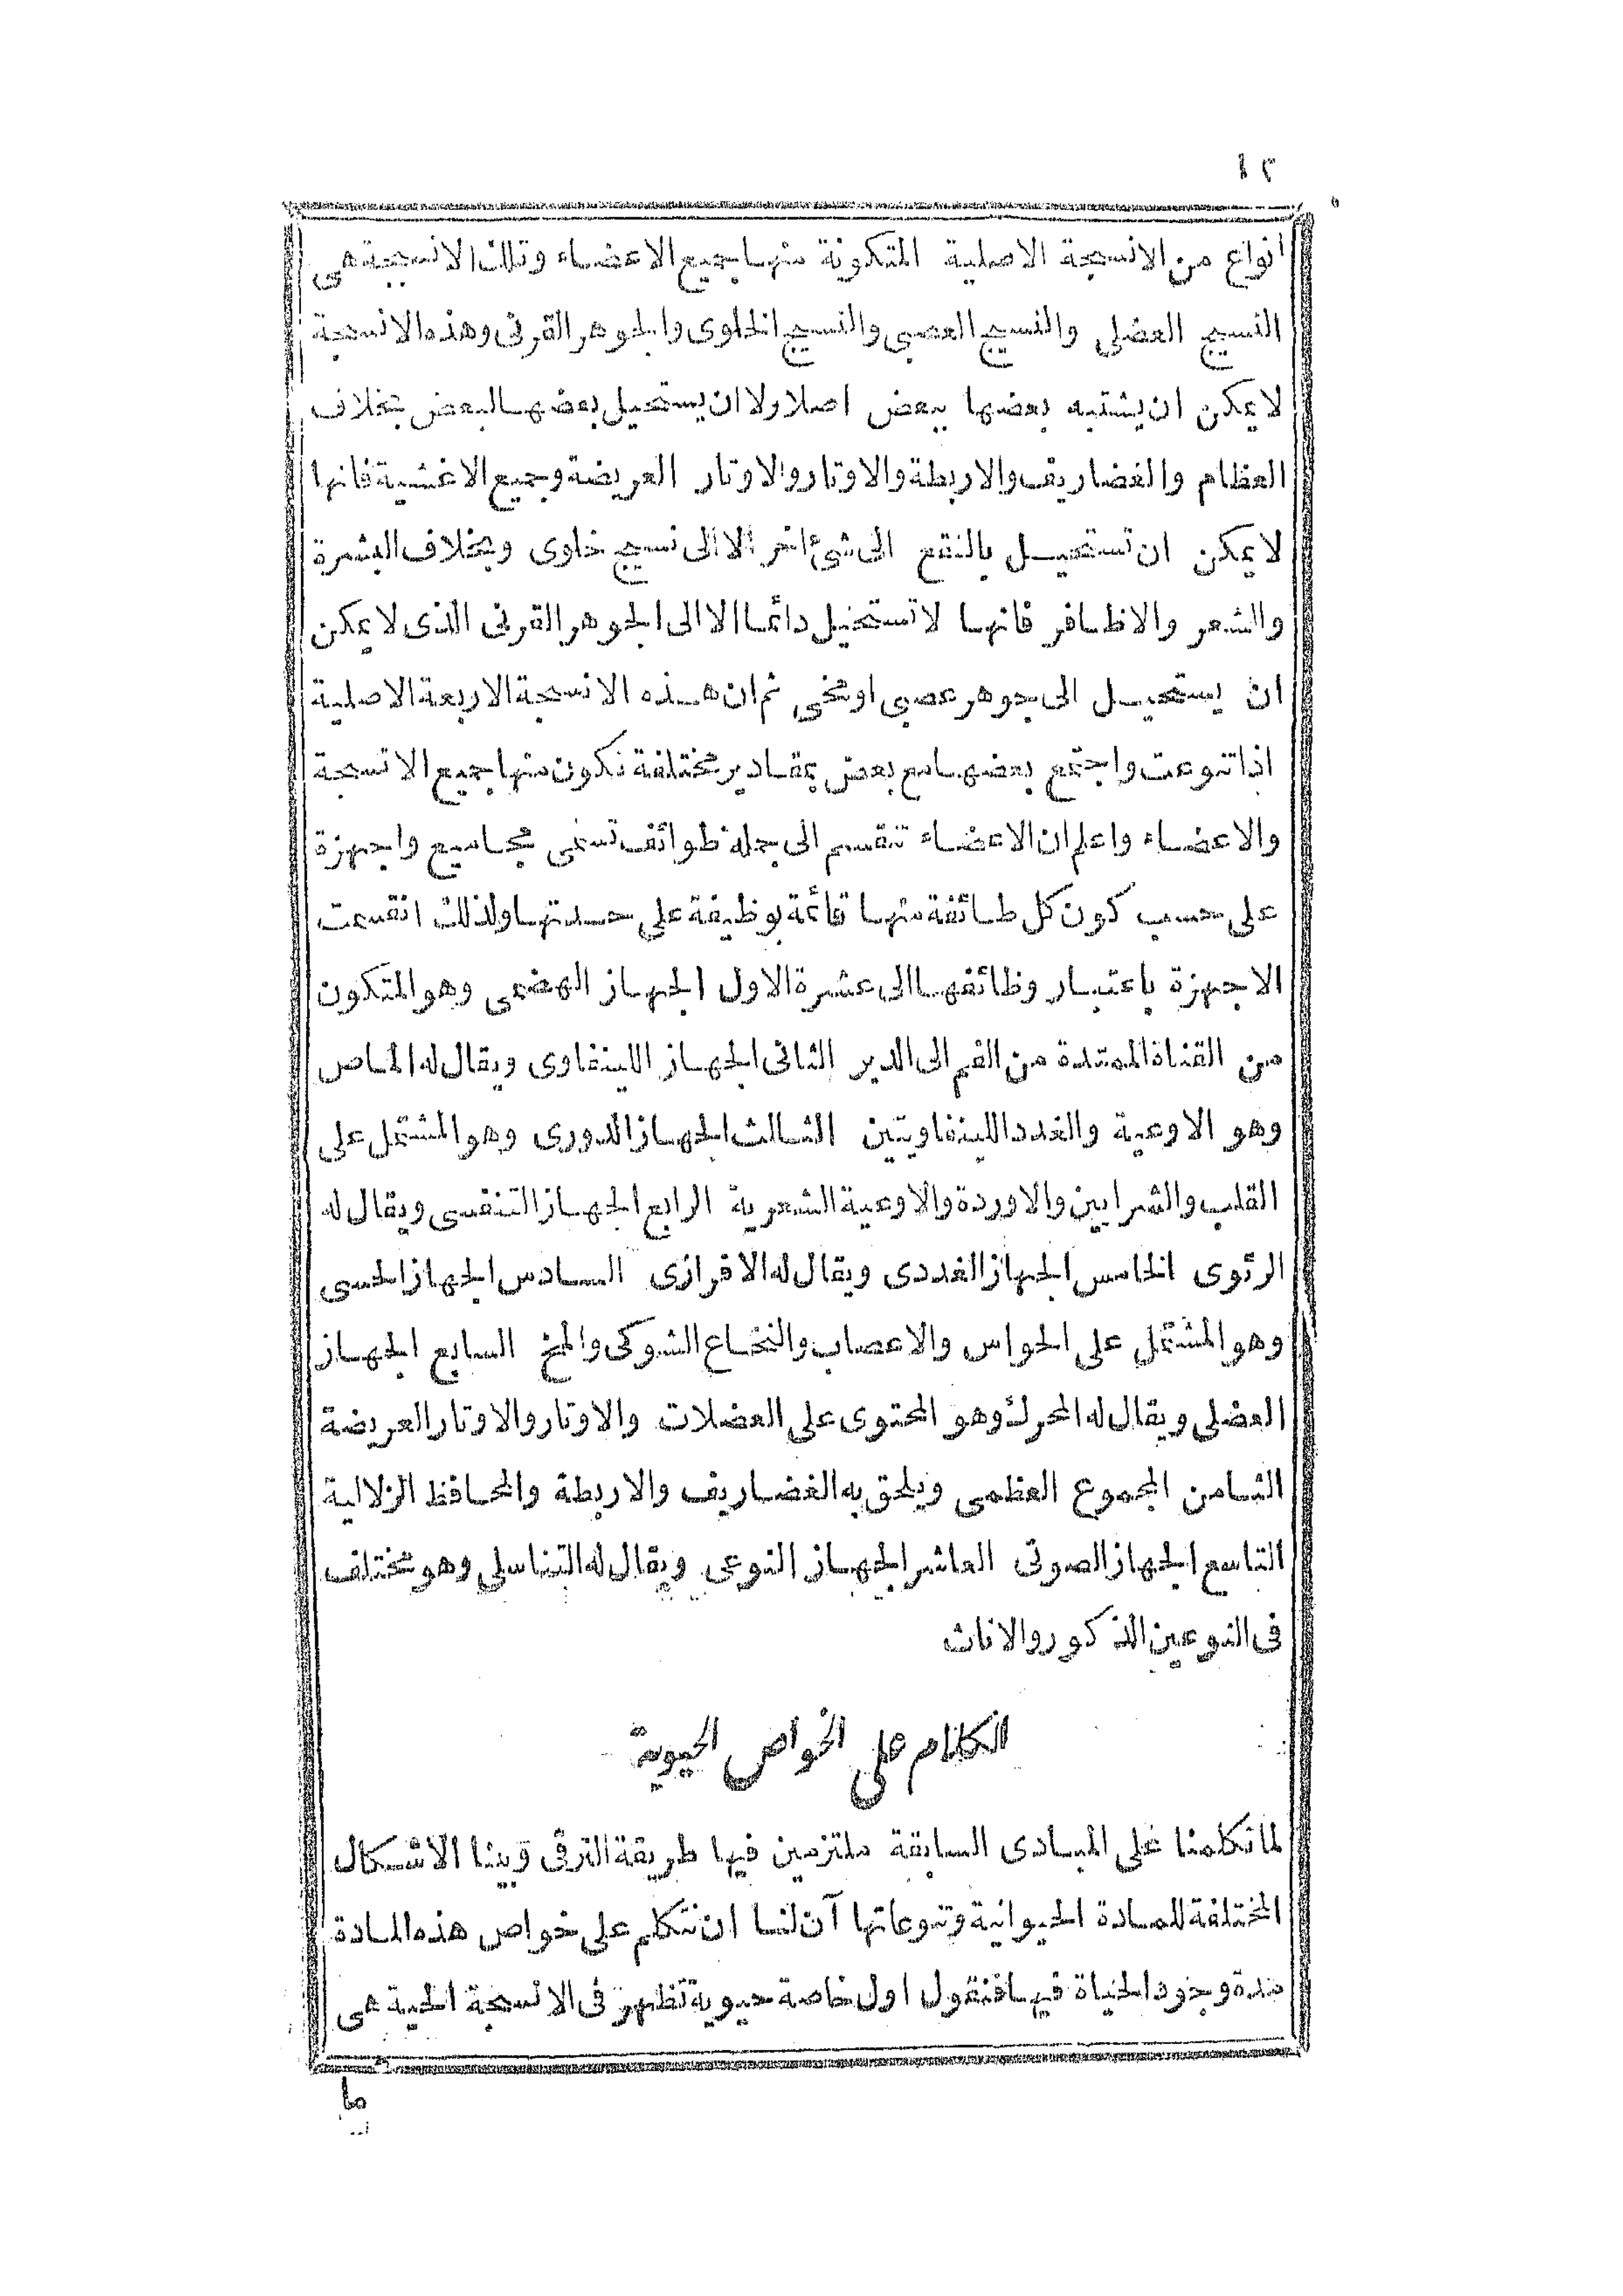 ١٢
انواع من الانسجة الاصلية المتكونة منها جميع الاعضاء وتلك الانسجة هى
النسيج العضلى والنسيج العصبى والنسيج الخلوى والجوهر القرنى وهذه الانسجة
لا يمكن ان يشتبه بعضها ببعض اصلا ولا ان يستحيل بعضها لبعض بخلاف
العظام والغضاريف والاربطة والاوتار والاوتار العريضة وجميع الاغشية فانها
لا يمكن ان تستحيل بالنقع الى شئ اخر الا الى نسيج خلوى وبخلاف البشرة
والشعر والاظافر فانها لا تستحيل دائما الا الى الجوهر القرنى الذى لا يمكن
ان يستحيل الى جوهر عصبى او مخى ثم ان هذه الانسجة الاربعة الاصلية
اذا تنوعت واجتمع بعضها مع بعض بمقادير مختلفة تكون منها جميع الانسجة
والاعضاء واعلم ان الاعضاء تنقسم الى جملة طوائف تسمى مجاميع واجهزة
على حسب كون كل طائفة منها قائمة بوظيفة على حدتها ولذلك انقسمت
الاجهزة باعتبار وظائفها الى عشرة الاول الجهاز الهضمى وهو المتكون
من القناة الممتدة من الفم الى الدبر الثانى الجهاز اللينفاوى ويقال له الماص
وهو الاوعية والغدد اللينفاويتين الثالث الجهاز الدورى وهو المشتمل على
القلب والشرايين والاوردة والاوعية الشعرية الرابع الجهاز التنفسى ويقال له
الرئوى الخامس الجهاز الغددى ويقال له الافرازى السادس الجهاز الحسى
وهو المشتمل على الحواس والاعصاب والنخاع الشوكى والمخ السابع الجهاز
العضلى ويقال له المحرك وهو المحتوى على العضلات والاوتار والاوتار العريضة
الثامن المجموع العظمى ويلحق به الغضاريف والاربطة والمحافظ الزلالية
التاسع الجهاز الصوتى العاشر الجهاز النوعى ويقال له التناسلى وهو مختلف
فى النوعين الذكور والاناث
الكلام على الخواص الحيوية
لما تكلمنا على المبادى السابقة ملتزمين فيها طريقة الترقى وبينا الاشكال
المختلفة للمادة الحيوانية وتنوعاتها آن لنا ان نتكلم على خواص هذه المادة
مدة وجود الحياة فيها فنقول اول خاصة حيوية تظهر فى الانسجة الحية هى
ما